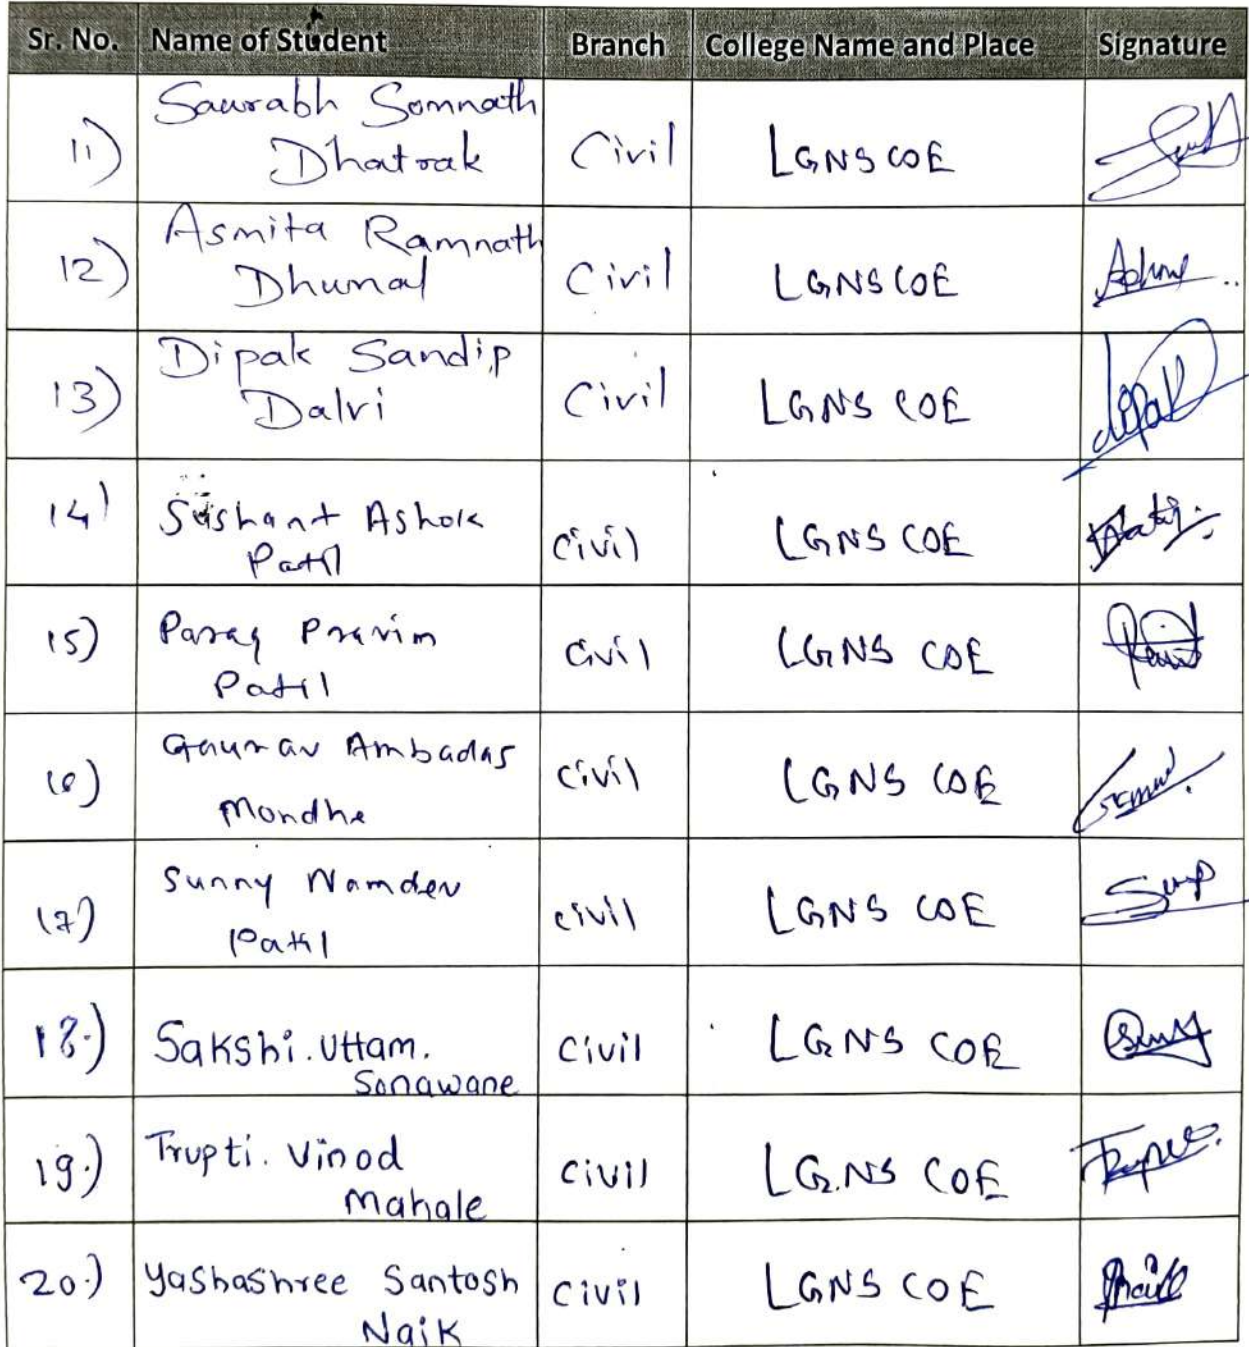 Sr. No. Name of Student Branch College Name and Place Signature
11) Saurabh Somnath Dhatrak Civil LGNS COE
12) Asmita Ramnath Dhumal Civil LGNS COE
13) Dipak Sandip Dalvi Civil LGNS COE dipak
14) Sushant Ashok Patil civil LGNS COE
15) Parag Pravin Patil civil LGNS COE
16) Gaurav Ambadas Mondhe civil LGNS COE
17) Sunny Namdev Patil civil LGNS COE
18.) Sakshi. Uttam. Sonawane civil LGNS COE
19.) Trupti. Vinod Mahale civil LG.NS COE
20.) Yashashree Santosh Naik civil LGNS COE